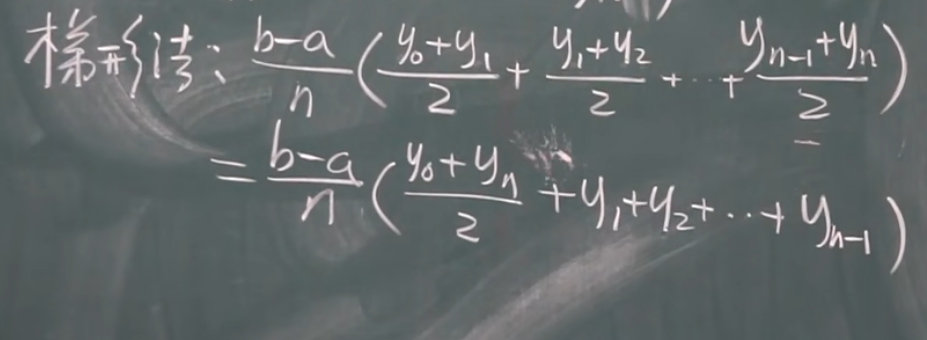 梯形法: \frac{b-a}{n}(\frac{y_0+y_1}{2}+\frac{y_1+y_2}{2}+\cdots+\frac{y_{n-1}+y_n}{2})
=\frac{b-a}{n}(\frac{y_0+y_n}{2}+y_1+y_2+\cdots+y_{n-1})